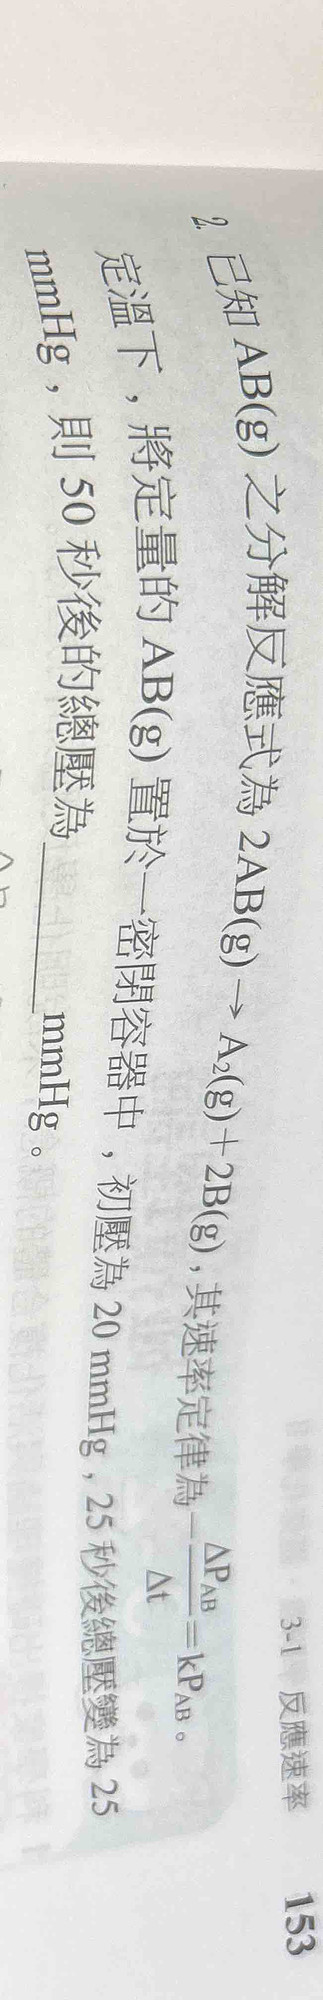 3-1 反應速率 153
2. 已知 AB(g) 之分解反應式為 2AB(g) → A₂(g) + 2B(g),其速率定律為 −ΔP_AB/Δt = kP_AB。
定溫下,將定量的 AB(g) 置於一密閉容器中,初壓為 20 mmHg,25 秒後總壓變為 25
mmHg,則 50 秒後的總壓為______mmHg。